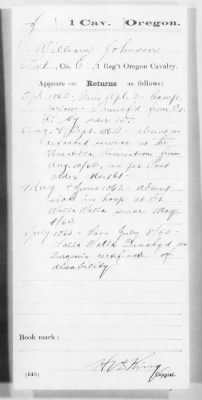 J 1 Cav. Oregon.
William Johnson
Pvt., Co. E, 1 Reg't Oregon Cavalry.
Appears on Returns as follows:
Apl. 1862 Camp
from Co.
by order
Aug. & Sept. 1862 absent on
detached service at the
Umatilla Reservation from
Aug. 10/62, as per Post
order No. 161.
May & June 1863 absent
sick in hosp. at Ft.
Walla Walla since May
1/63
July 1863 Loss July 8/63
Walla Walla Dischg'd, on
Surgeon's certificate of
disability
Book mark:
(546) Copyist.